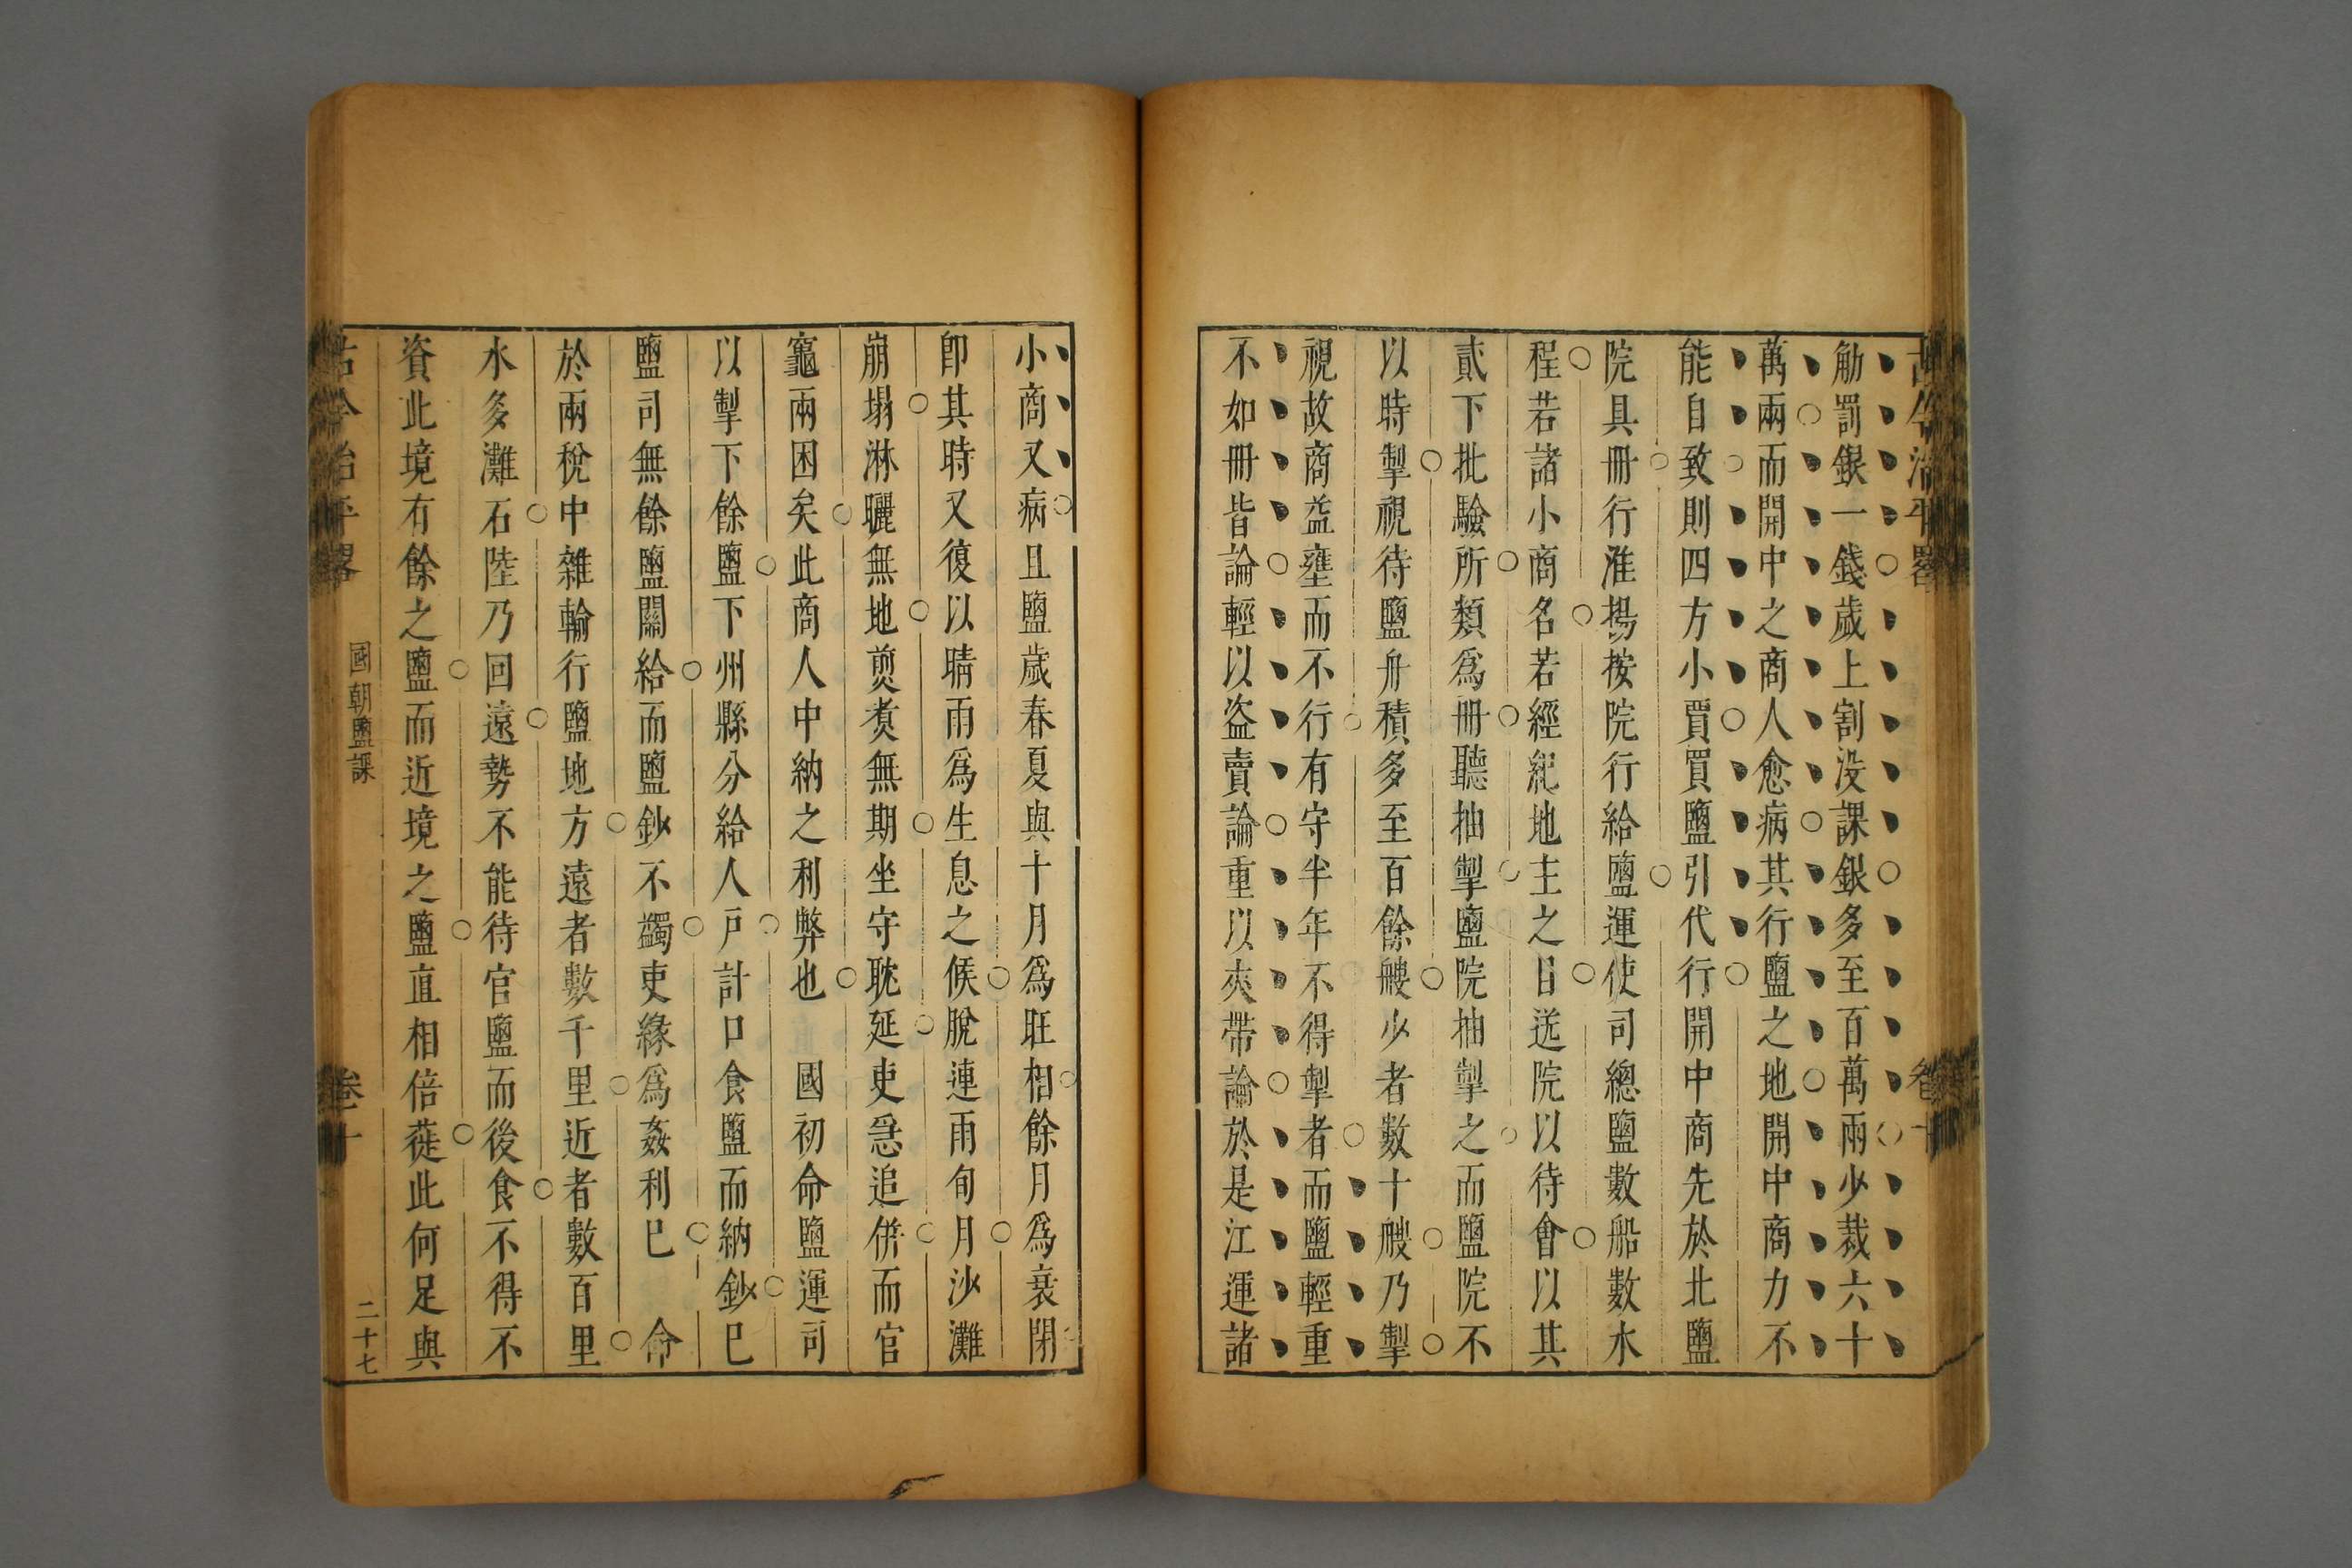 古今治平畧
卷十
觔罰銀一錢歲上割没課銀多至百萬兩少裁六十
萬兩而開中之商人愈病其行鹽之地開中商力不
能自致則四方小賈買鹽引代行開中商先於北鹽
院具冊行淮揚按院行給鹽運使司總鹽數船數水
程若諸小商名若經紀地主之日送院以待會以其
貳下批驗所類爲冊聽抽掣鹽院抽掣之而鹽院不
以時掣視待鹽舟積多至百餘艘少者數十艘乃掣
視故商益壅而不行有守半年不得掣者而鹽輕重
不如冊皆論輕以盜賣論重以夾帶論於是江運諸
小商又病且鹽歲春夏與十月爲旺相餘月爲衰閉
卽其時又復以晴雨爲生息之候脫連雨旬月沙灘
崩塌淋曬無地煎煑無期坐守耽延吏急追併而官
竈兩困矣此商人中納之利弊也 國初命鹽運司
以掣下餘鹽下州縣分給人戶計口食鹽而納鈔巳
鹽司無餘鹽關給而鹽鈔不蠲吏緣爲姦利巳 命
於兩稅中雜輸行鹽地方遠者數千里近者數百里
水多灘石陸乃回遠勢不能待官鹽而後食不得不
資此境有餘之鹽而近境之鹽直相倍蓰此何足與
古今治平畧
國朝鹽課
卷十
二十七